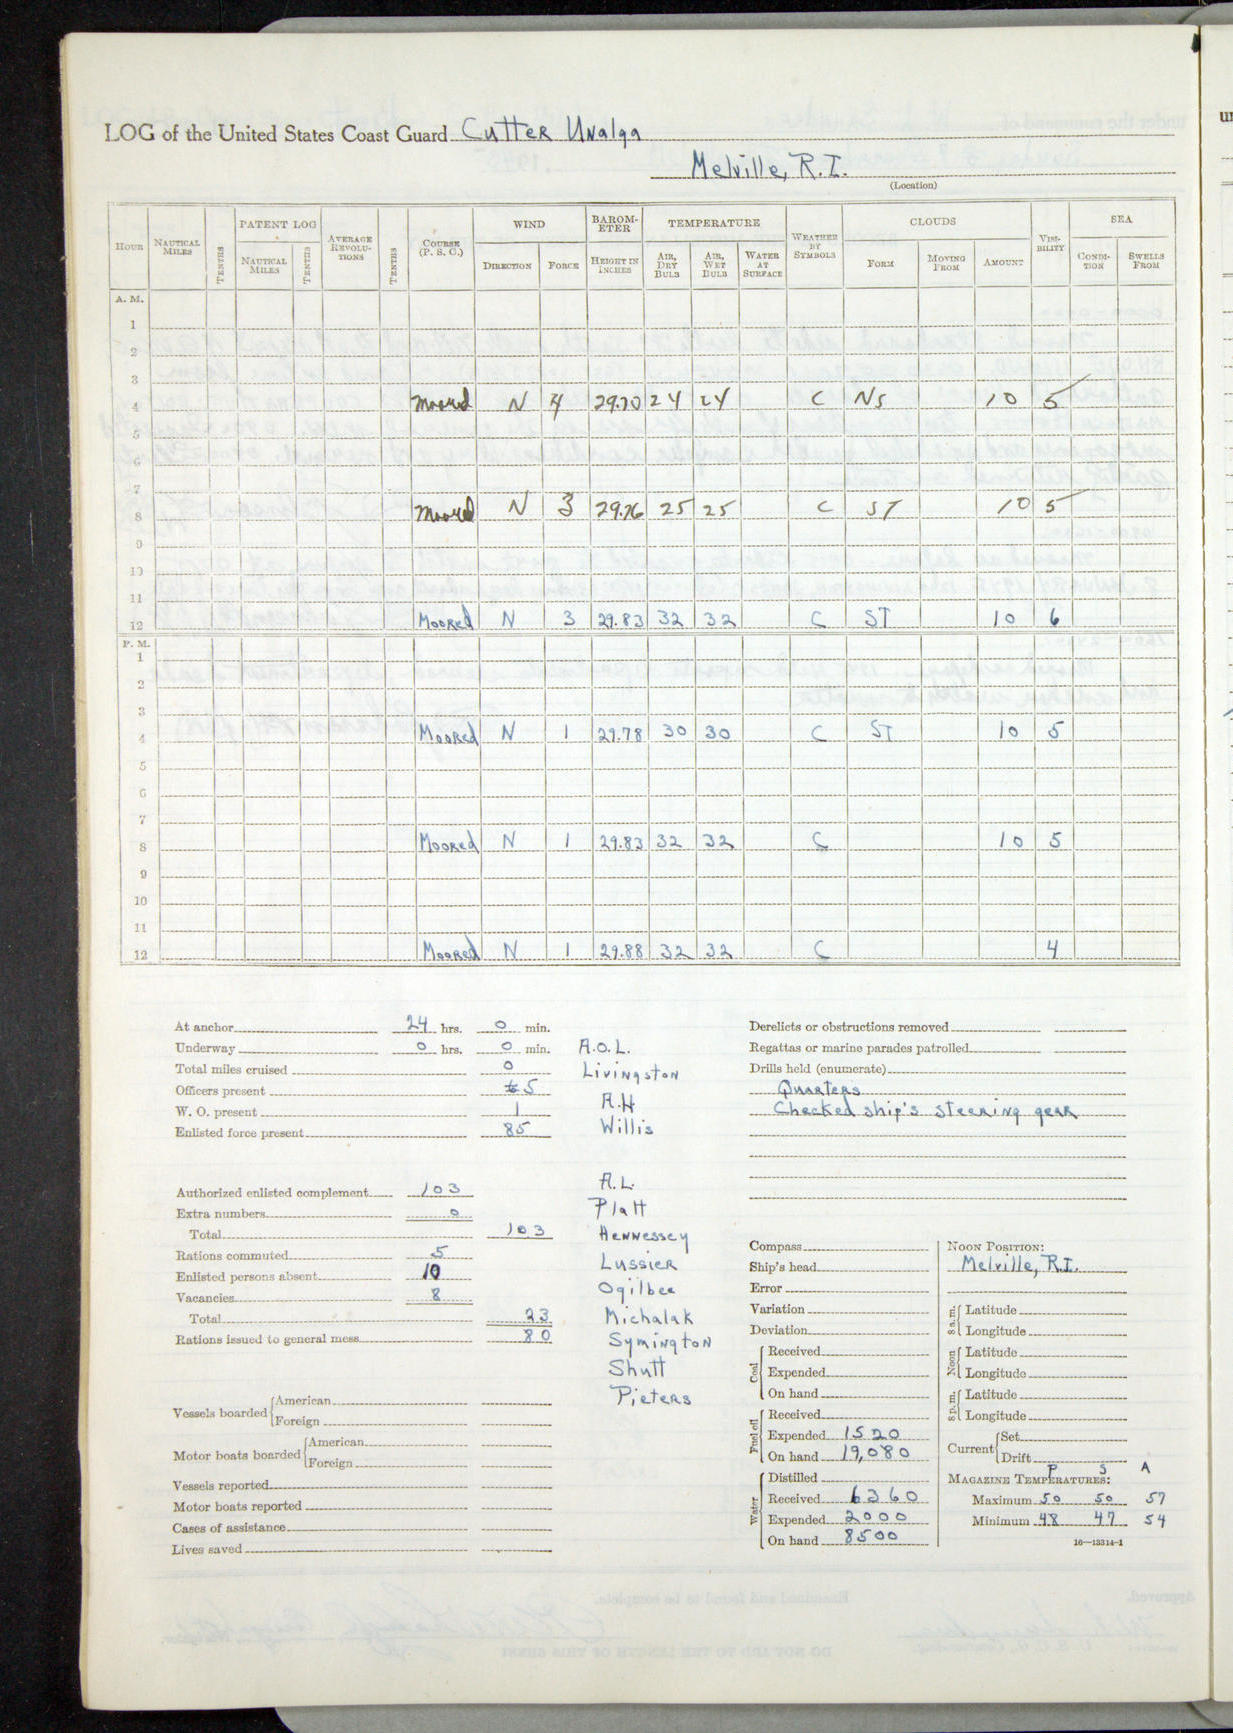 LOG of the United States Coast Guard Cutter Unalga
Melville, R.I.
(Location)
HOUR NAUTICAL MILES TENTHS PATENT LOG NAUTICAL MILES TENTHS AVERAGE REVOLUTIONS TENTHS COURSE (P. S. C.) WIND DIRECTION FORCE BAROMETER HEIGHT IN INCHES TEMPERATURE AIR, DRY BULB AIR, WET BULB WATER AT SURFACE WEATHER BY SYMBOLS CLOUDS FORM MOVING FROM AMOUNT VISIBILITY SEA CONDITION SWELLS FROM
A. M.
1
2
3
4 Moored N 4 29.70 24 24 C NS 10 5
5
6
7
8 Moored N 3 29.76 25 25 C ST 10 5
9
10
11
12 Moored N 3 29.83 32 32 C ST 10 6
P. M.
1
2
3
4 Moored N 1 29.78 30 30 C ST 10 5
5
6
7
8 Moored N 1 29.83 32 32 C 10 5
9
10
11
12 Moored N 1 29.88 32 32 C 4
At anchor 24 hrs. 0 min.
Underway 0 hrs. 0 min.
Total miles cruised 0
Officers present 5
W. O. present 1
Enlisted force present 85
Authorized enlisted complement 103
Extra numbers 0
Total 103
Rations commuted 5
Enlisted persons absent 10
Vacancies 8
Total 23
Rations issued to general mess 80
Vessels boarded American
Foreign
Motor boats boarded American
Foreign
Vessels reported
Motor boats reported
Cases of assistance
Lives saved
A.O.L.
Livingston
A.H
Willis
A.L.
Platt
Hennessey
Lussier
Ogilbee
Michalak
Symington
Shutt
Pieters
Derelicts or obstructions removed
Regattas or marine parades patrolled
Drills held (enumerate)
Quarters
Checked ship's steering gear
Compass
Ship's head
Error
Variation
Deviation
Coal Received
Expended
On hand
Fuel oil Received
Expended 1520
On hand 19,080
Water Distilled
Received 6360
Expended 2000
On hand 8500
NOON POSITION:
Melville, R.I.
8 a.m. Latitude
Longitude
Noon Latitude
Longitude
8 p.m. Latitude
Longitude
Current Set
Drift
P S A
MAGAZINE TEMPERATURES:
Maximum 50 50 57
Minimum 48 47 54
16—13314-1